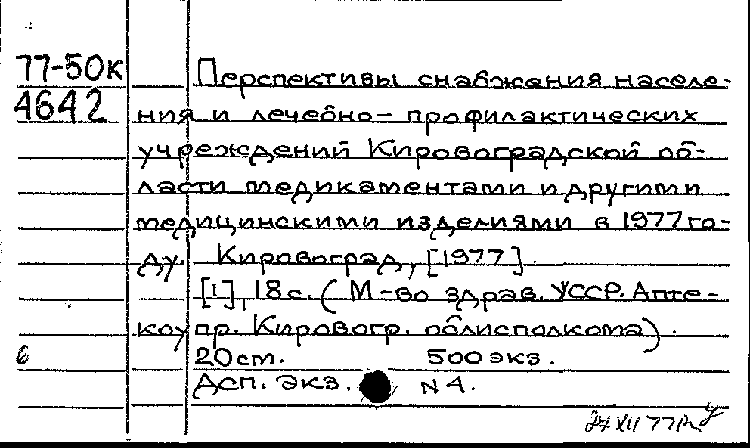 77-50к
4642
Перспективы снабжения населе-
ния и лечебно-профилактических
учреждений Кировоградской об-
ласти медикаментами и другими
медицинскими изделиями в 1977 го-
ду. Кировоград, [1977].
[1], 18 с. (М-во здрав. УССР. Апте-
коупр. Кировогр. облисполкома).
6 20 см. 500 экз.
Дсп. экз. N 4.
24 XII 77